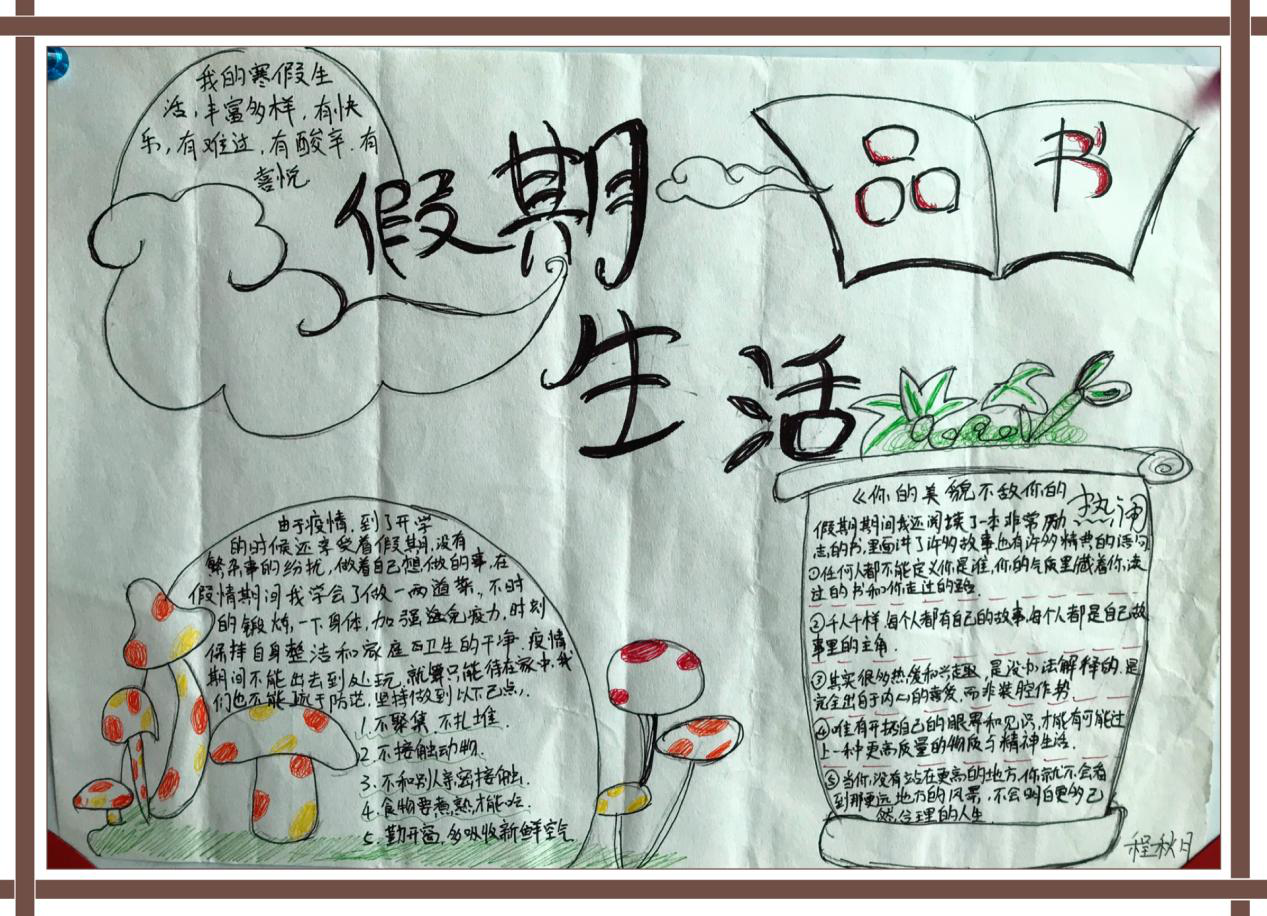 我的寒假生
活,丰富多样,有快
乐,有难过,有酸辛.有
喜悦
假期
生活
品书
由于疫情,到了开学
的时候还享受着假期,没有
繁杂事的纷扰,做着自己想做的事,在
假情期间我学会了做一两道菜,不时
的锻炼,一下身体,加强免疫力,时刻
保持自身整洁和家庭卫生的干净.疫情
期间不能出去到处玩,就算只能待在家中,我
们也不能疏于防范,坚持做到以下几点,
1.不聚集,不扎堆.
2.不接触动物.
3.不和别人亲密接触.
4.食物要煮熟才能吃.
5.勤开窗,多吸收新鲜空气
《你的美貌不敌你的
热闹
假期期间我还阅读了一本非常励
志的书,里面讲了许多故事也有许多精典的语句
①任何人都不能定义你是谁,你的气质里藏着你读
过的书和你走过的路.
②千人千样,每个人都有自己的故事,每个人都是自己故
事里的主角.
③其实很多热爱和兴趣,是没办法解释的.是
完全出自于内心的喜爱,而非装腔作势.
④唯有开拓自己的眼界和见识,才能有可能过
上一种更高质量的物质与精神生活.
⑤当你没有站在更高的地方,你就不会看
到那更远地方的风景,不会明白更多
然合理的人生
程秋月